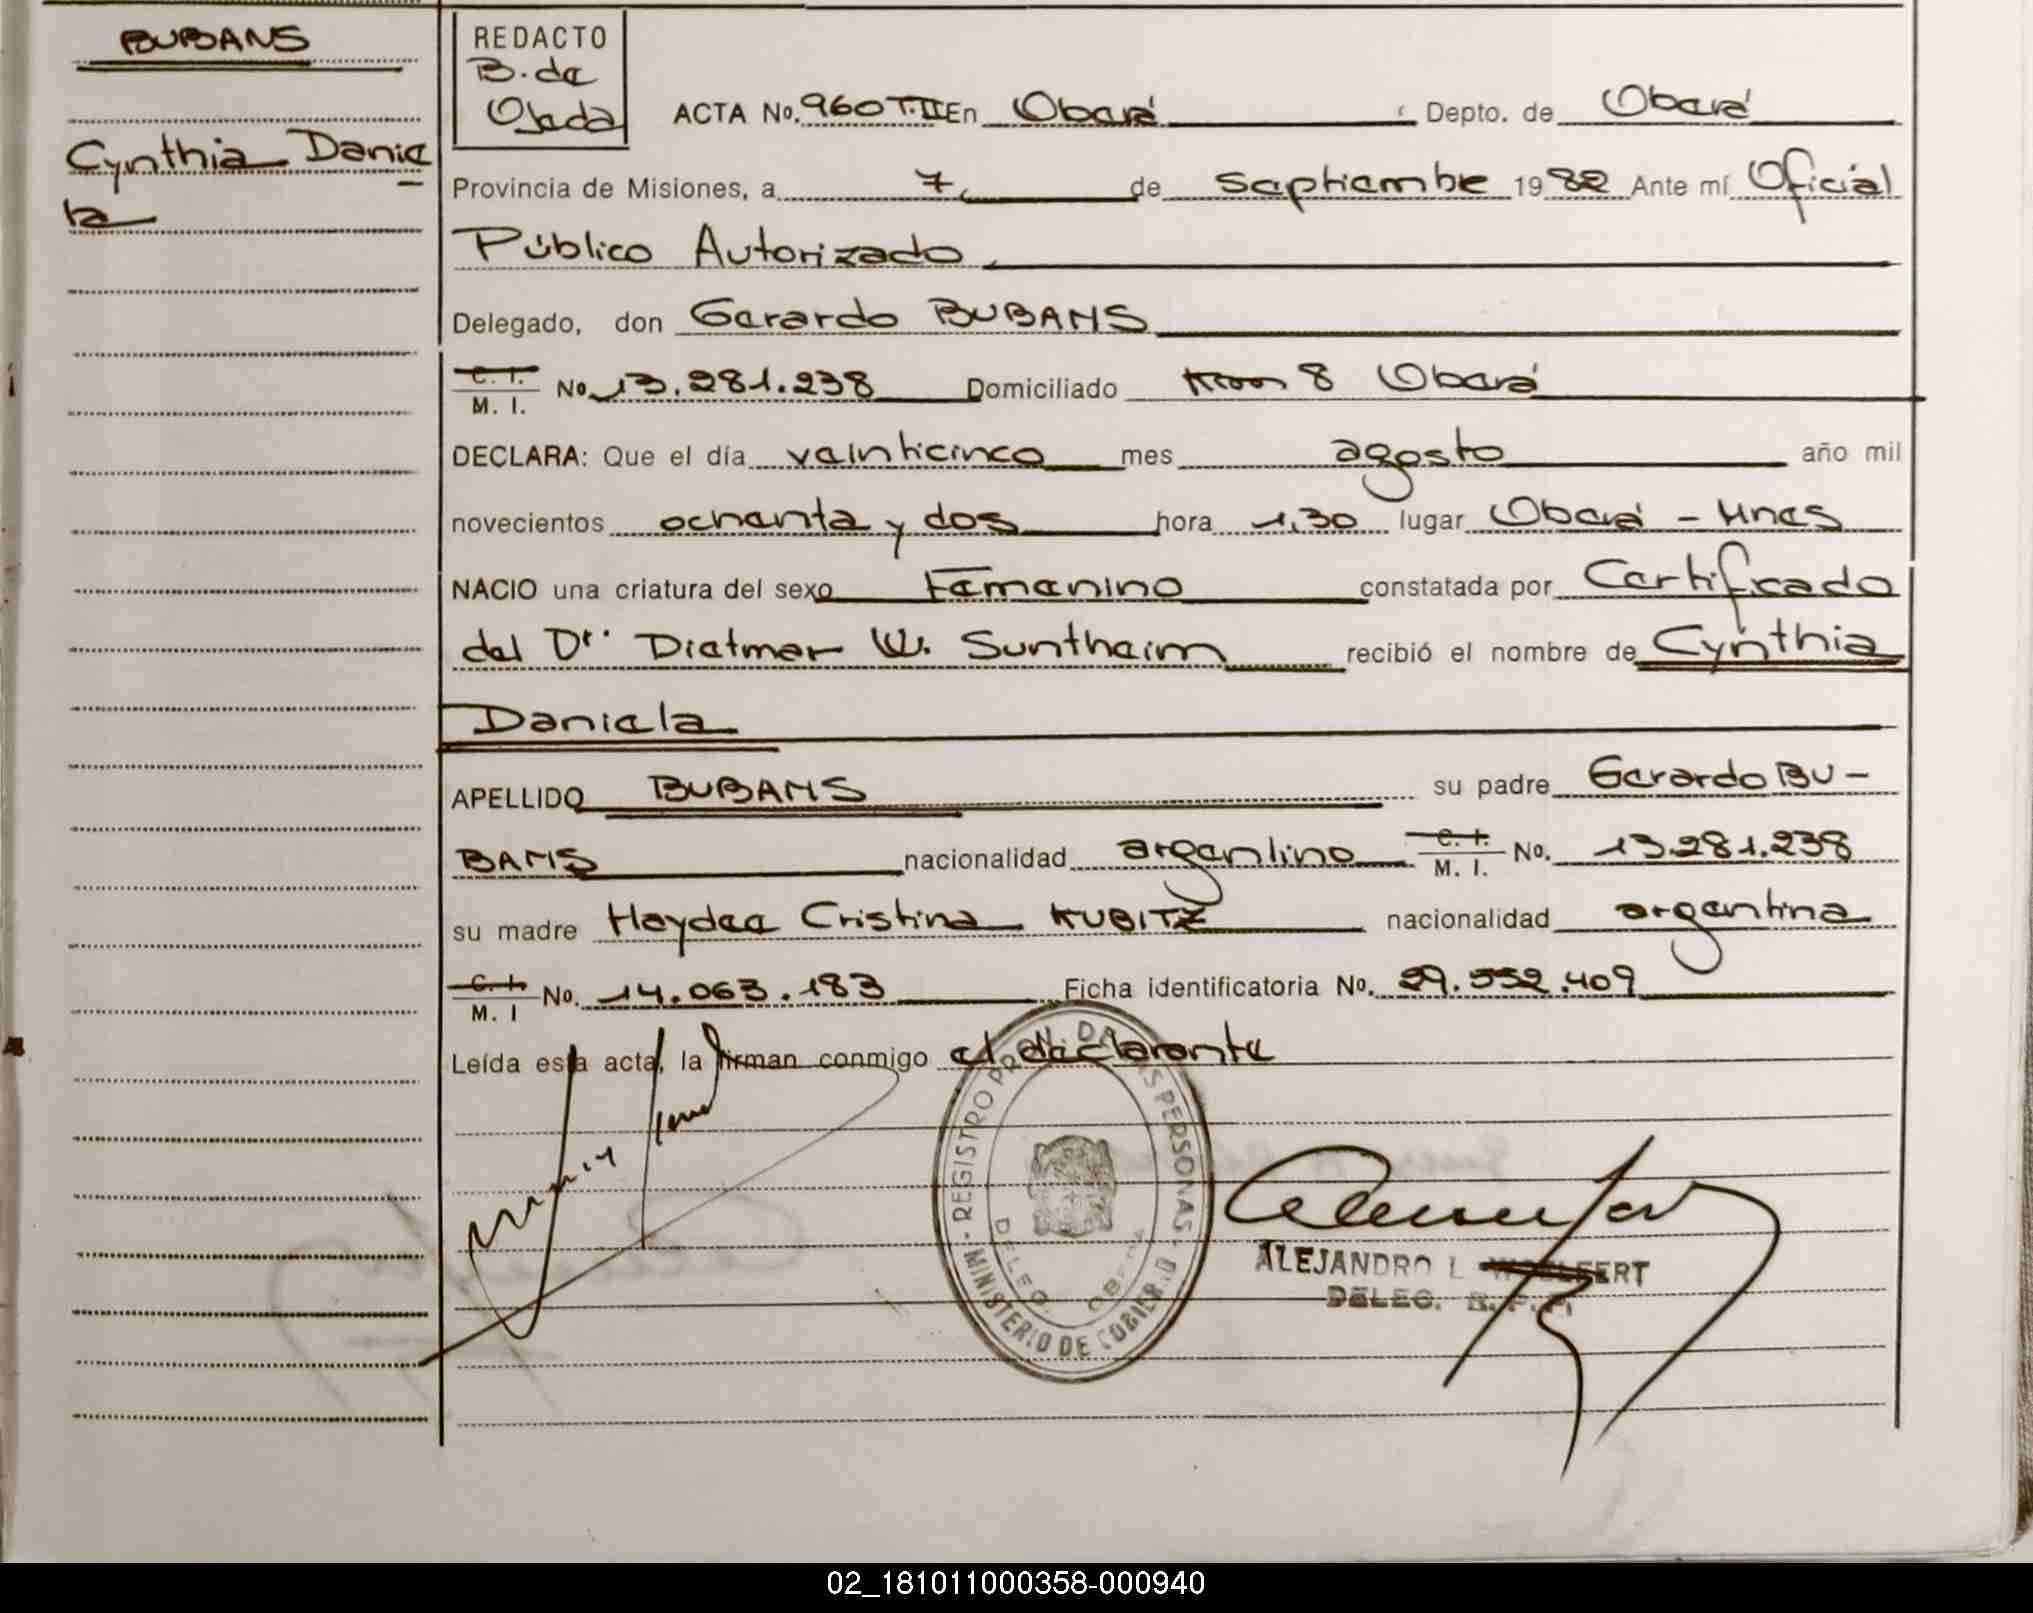 BUBANS
Cynthia Danie
la
REDACTO
B. de
Ojeda
ACTA No. 960 T.II En Oberá Depto. de Oberá
Provincia de Misiones, a 7 de Septiembre 1982 Ante mí Oficial
Público Autorizado
Delegado, don Gerardo BUBANS
C. I. M. I. No. 13.281.238 Domiciliado Km 8 Oberá
DECLARA: Que el día veinticinco mes agosto año mil
novecientos ochenta y dos hora 1,30 lugar Oberá - Mnes
NACIO una criatura del sexo Femenino constatada por Certificado
del Dr. Dietmar W. Suntheim recibió el nombre de Cynthia
Daniela
APELLIDO BUBANS su padre Gerardo BU-
BANS nacionalidad argentino C. I. M. I. No. 13.281.238
su madre Haydee Cristina KUBITZ nacionalidad argentina
C. I. M. I No. 14.063.183 Ficha identificatoria No. 29.552.409
Leída esta acta, la firman conmigo el declarante
REGISTRO PROV. DE LAS PERSONAS
DELEG. OBERA
MINISTERIO DE GOBIERNO
ALEJANDRO L. WOELFERT
DELEG. R. P. P.
02_181011000358-000940